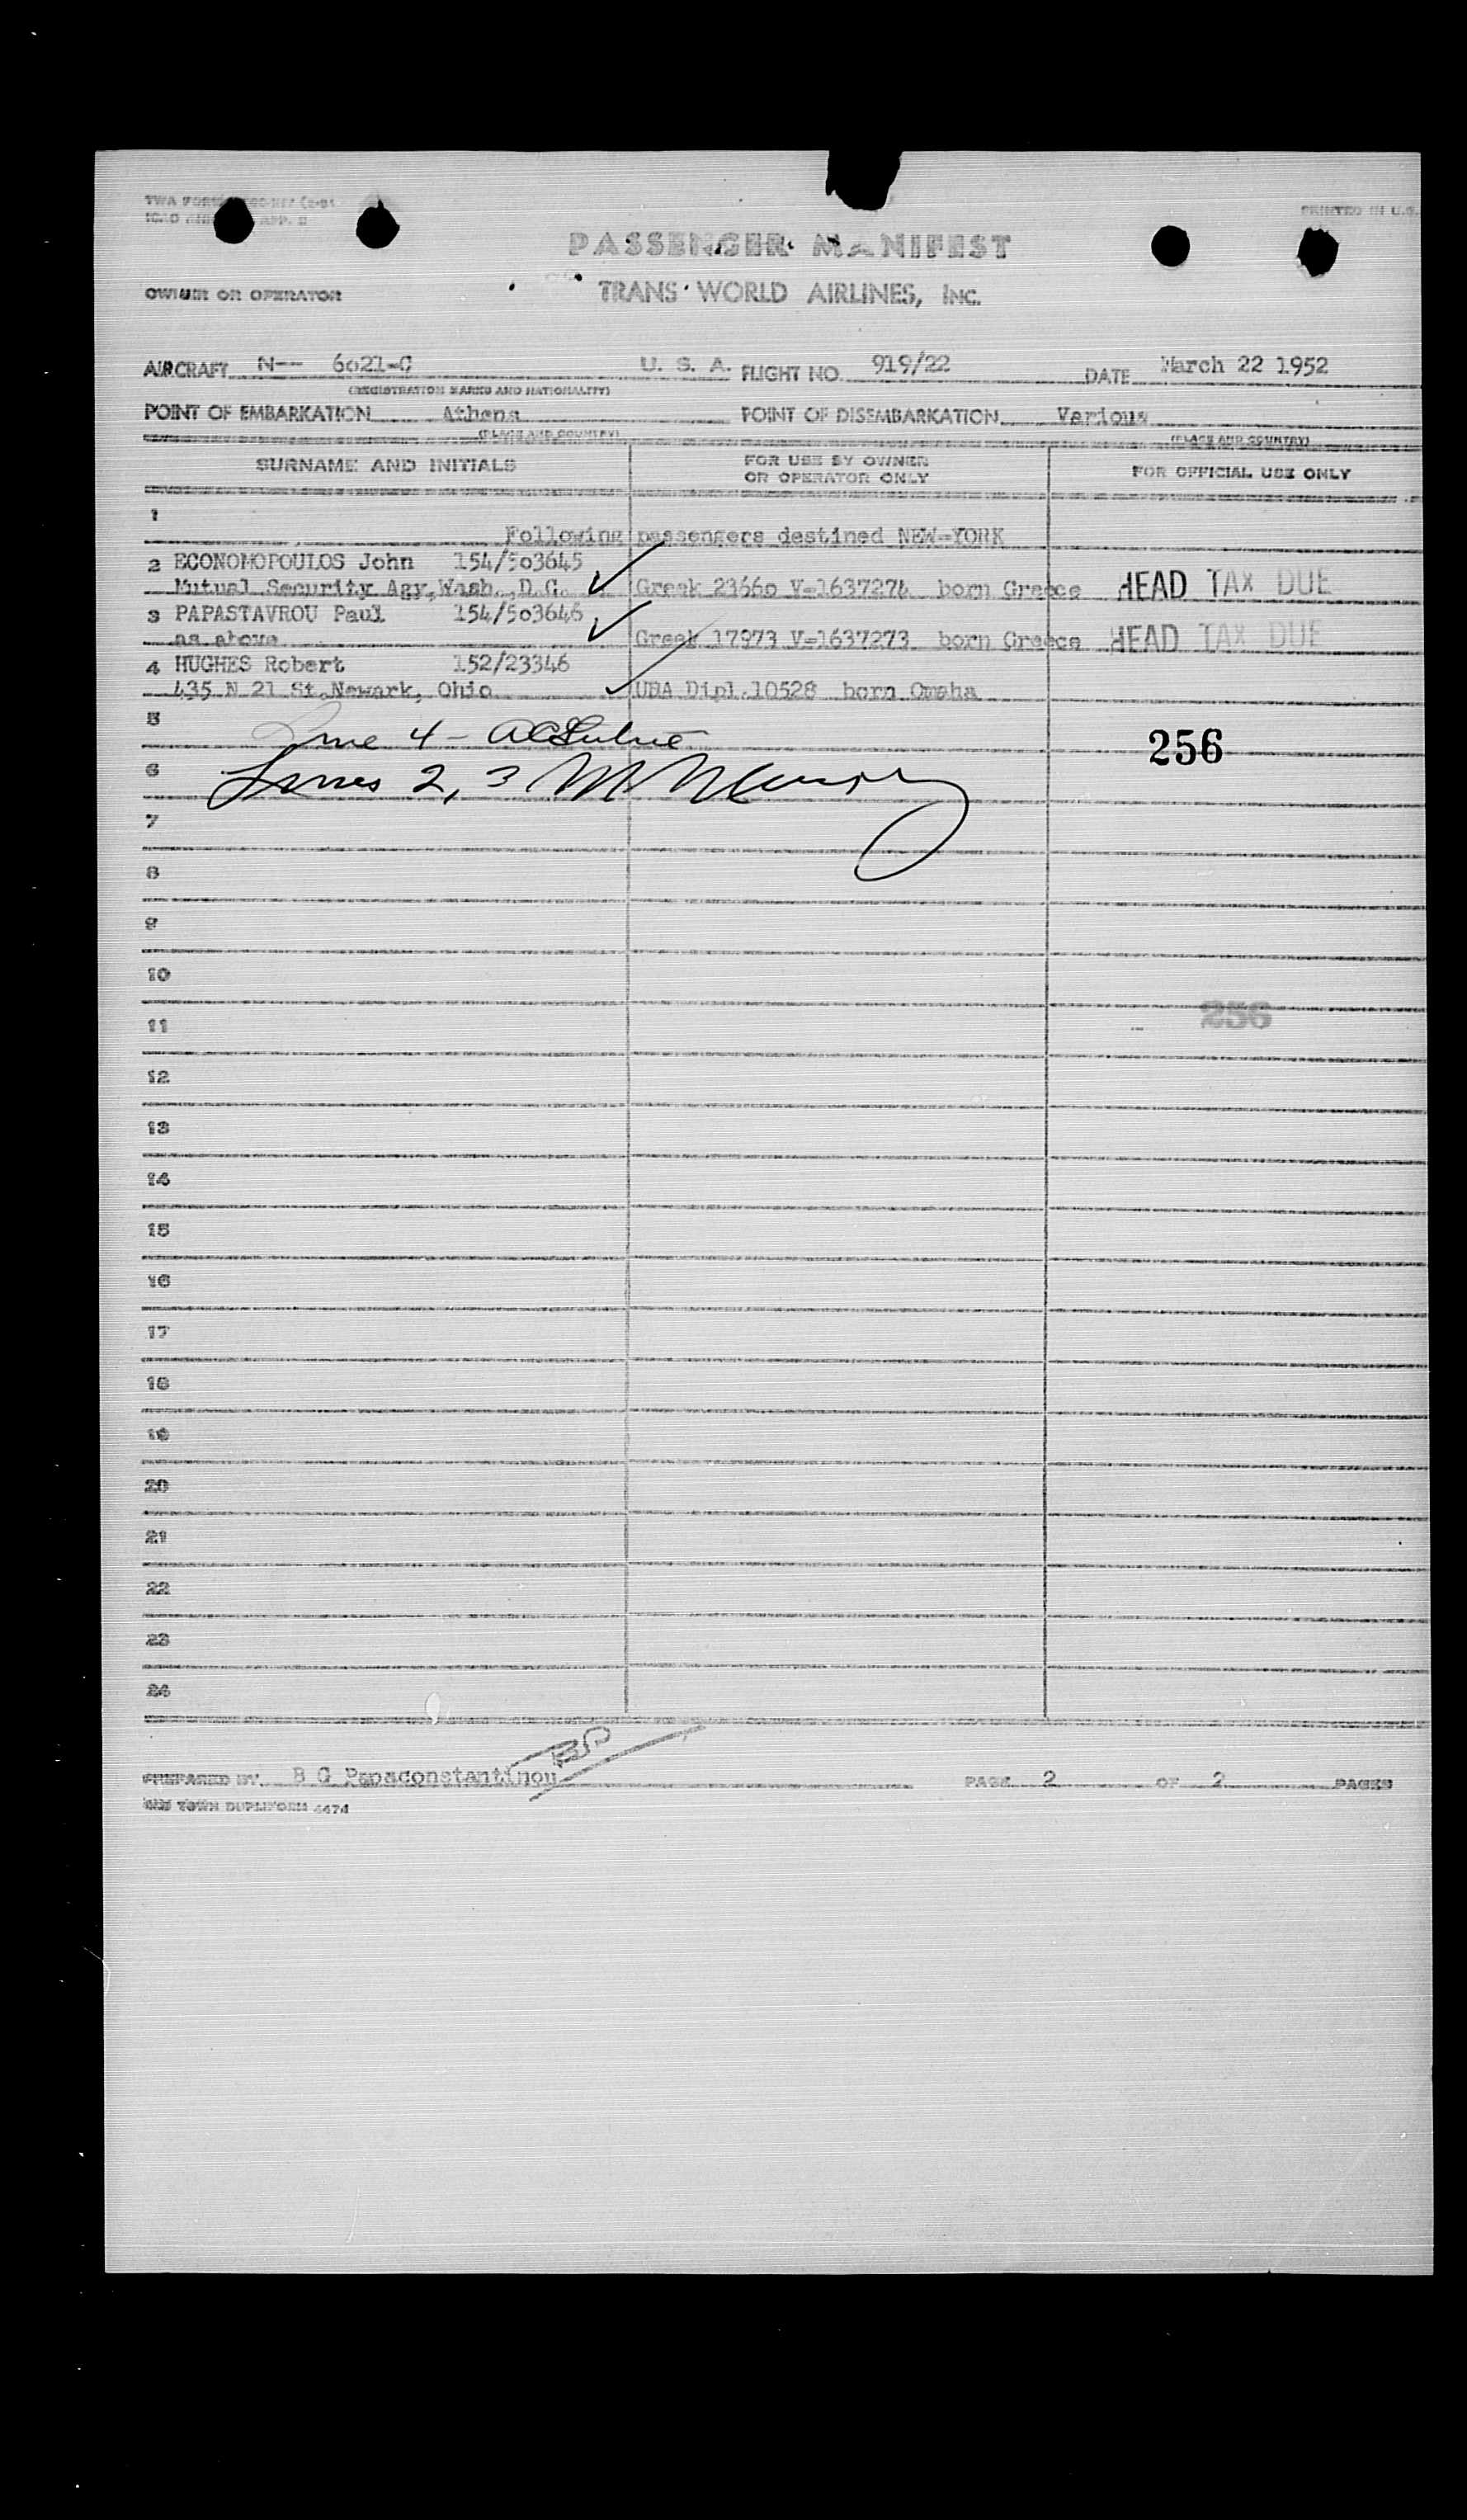 PRINTED IN U.S.
PASSENGER MANIFEST
OWNER OR OPERATOR TRANS WORLD AIRLINES, INC.
AIRCRAFT N-- 6021-C U. S. A. FLIGHT NO. 919/22 DATE March 22 1952
(REGISTRATION MARKS AND NATIONALITY)
POINT OF EMBARKATION Athens POINT OF DISEMBARKATION Various
(PLACE AND COUNTRY) (PLACE AND COUNTRY)
SURNAME AND INITIALS FOR USE BY OWNER OR OPERATOR ONLY FOR OFFICIAL USE ONLY
1
Following passengers destined NEW-YORK
2 ECONOMOPOULOS John 154/503645
Mutual Security Agy,Wash.,D.C. Greek 23660 V-1637274 born Greece HEAD TAX DUE
3 PAPASTAVROU Paul 154/503646
as above Greek 17973 V-1637273 born Greece HEAD TAX DUE
4 HUGHES Robert 152/23346
435 N 21 St.Newark, Ohio USA Dipl.10528 born Omaha
5 Line 4 - 256
6 Lines 2, 3 M
7
8
9
10
11 256
12
13
14
15
16
17
18
19
20
21
22
23
24
PREPARED BY B G Papaconstantinou PAGE 2 OF 2 PAGES
TOWN DUPLIFORM 4474